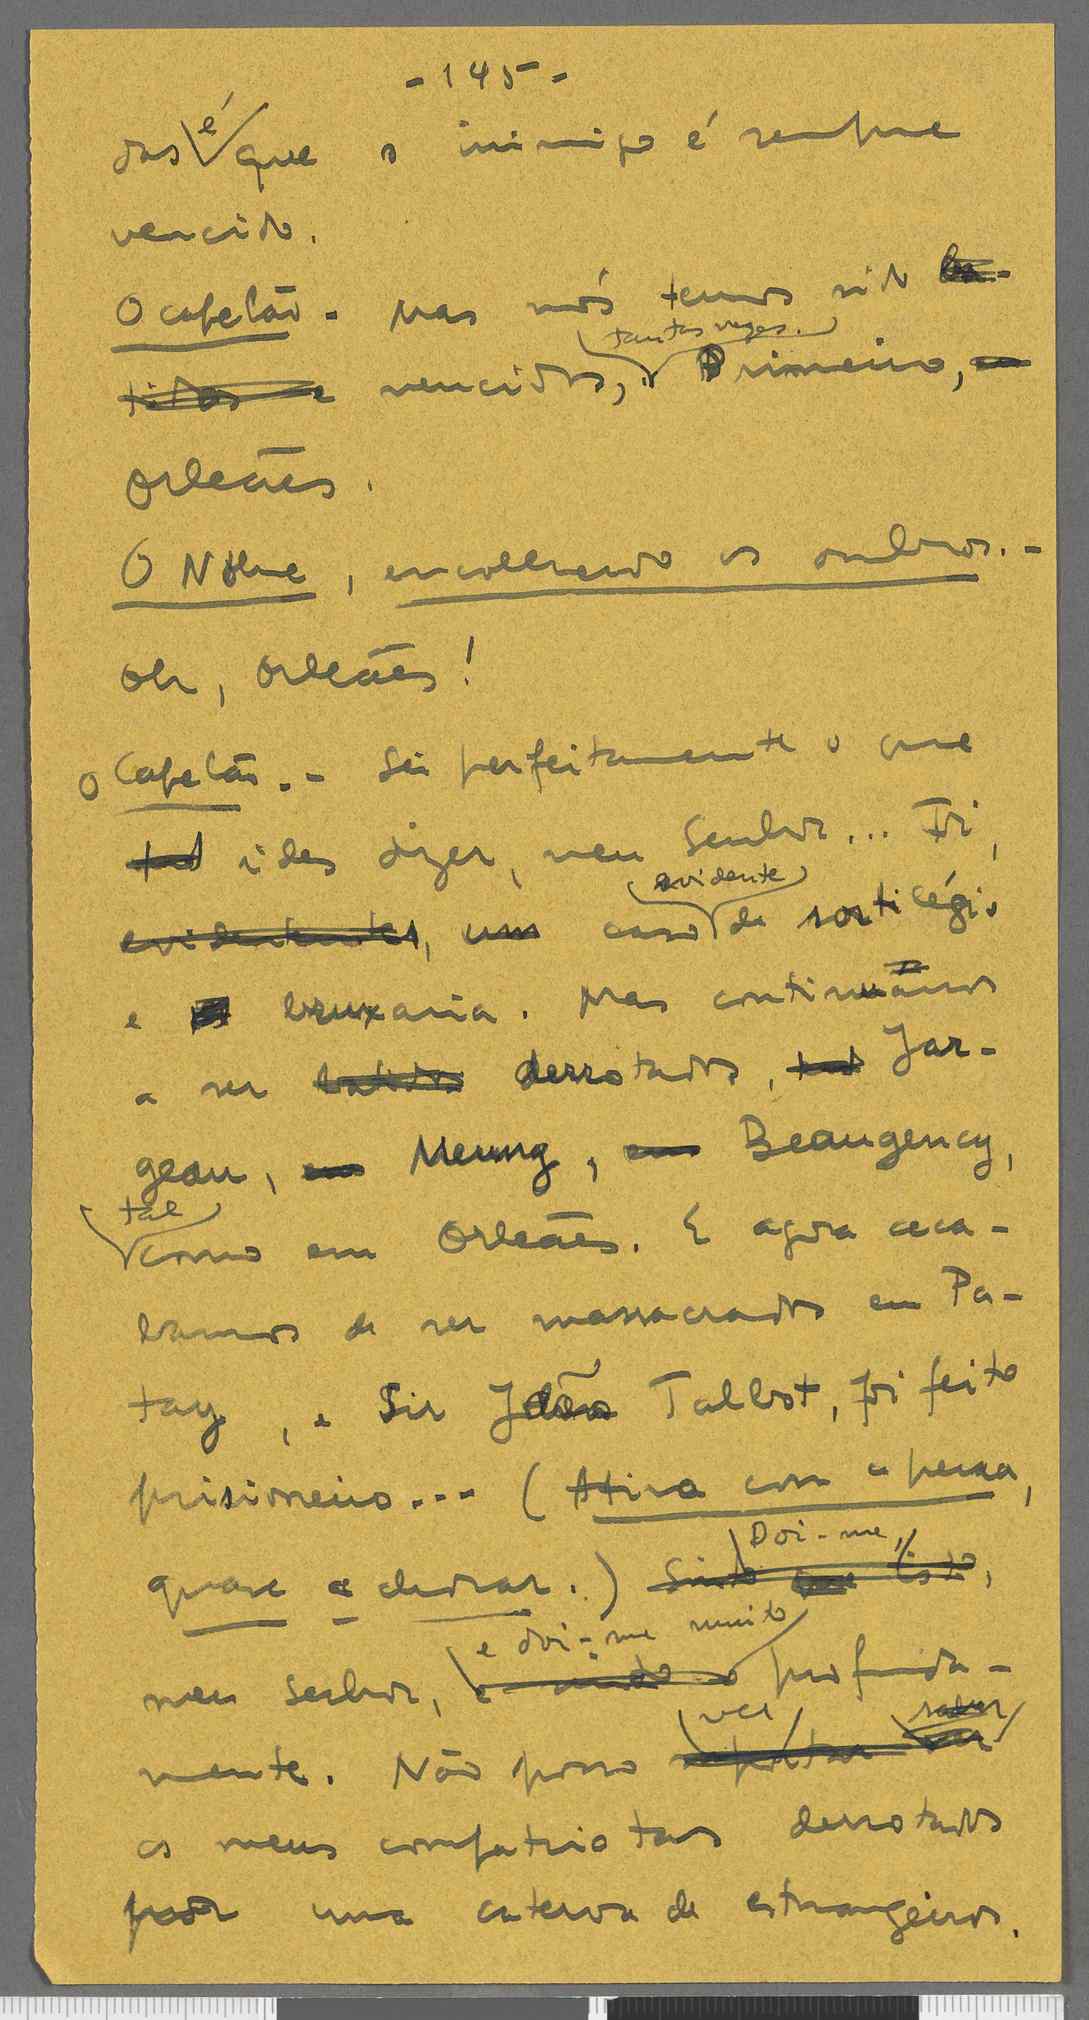 -145-
das é que o inimigo é sempre
vencido.
O capelão - Mas nós temos sido ba-
tidos e vencidos, tantas vezes. Primeiro, em
Orleães.
O Nobre, encolhendo os ombros.-
Oh, Orleães!
O Capelão.- Sei perfeitamente o que
ides dizer, meu Senhor... Foi,
evidentemente, um caso evidente de sortilégio
e bruxaria. Mas continuámos
a ser batidos derrotados, Jar-
geau, em Meung, em Beaugency,
tal como em Orleães. E agora aca-
bamos de ser massacrados em Pa-
tay, e Sir João Talbot, foi feito
prisioneiro... (Atira com a pena,
quase a chorar.) Sinto que isto, Doi-me,
meu senhor, e doi-me muito profunda-
mente. Não posso suportar ver
os meus compatriotas derrotados
por uma caterva de estrangeiros.